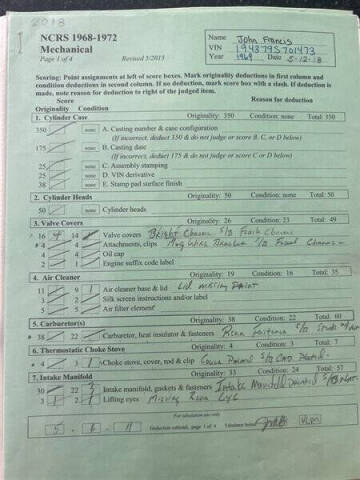 2018
NCRS 1968-1972
Mechanical
Page 1 of 4 Revised 5/2013
Name John Francis
VIN 194379S701473
Year 1969 Date 5-12-18
Scoring: Point assignments at left of score boxes. Mark original deductions in first column and
condition deductions in second column. If no deduction, mark score box with a slash. If deduction is
made, note reason for deduction to right of the judged item.
Score Reason for deduction
Originality Condition
1. Cylinder Case Originality: 350 Condition: none Total: 350
350 none A. Casting number & case configuration
(If incorrect, deduct 350 & do not judge or score B, C, or D below)
175 none B. Casting date
(If incorrect, deduct 175 & do not judge or score C or D below)
25 none C. Assembly stamping
25 none D. VIN derivative
38 none E. Stamp pad surface finish
2. Cylinder Heads Originality: 50 Condition: none Total: 50
50 none Cylinder heads
3. Valve Covers Originality: 26 Condition: 23 Total: 49
16 14 Valve covers Bright Chrome S/B Flash Chrome
4 4 Attachments, clips Plug Wire Bracket S/B Chrome
4 4 Oil cap
2 1 Engine suffix code label
4. Air Cleaner Originality: 19 Condition: 16 Total: 35
9 1 Air cleaner base & lid Lid missing Paint
3 2 Silk screen instructions and/or label
5 5 Air filter element
5. Carburetor(s) Originality: 38 Condition: 22 Total: 60
38 22 Carburetor, heat insulator & fasteners Rear S/B Studs
6. Thermostatic Choke Stove Originality: 4 Condition: 3 Total: 7
4 3 1 Choke stove, cover, rod & clip Cover Painted S/B Cad Plated
7. Intake Manifold Originality: 33 Condition: 24 Total: 57
30 22 3 Intake manifold, gaskets & fasteners Intake Manifold Painted S/B
3 1 2 1 Lifting eyes Missing Rear
For tabulation use only
5 6 11 Deduction subtotal, page 1 of 4